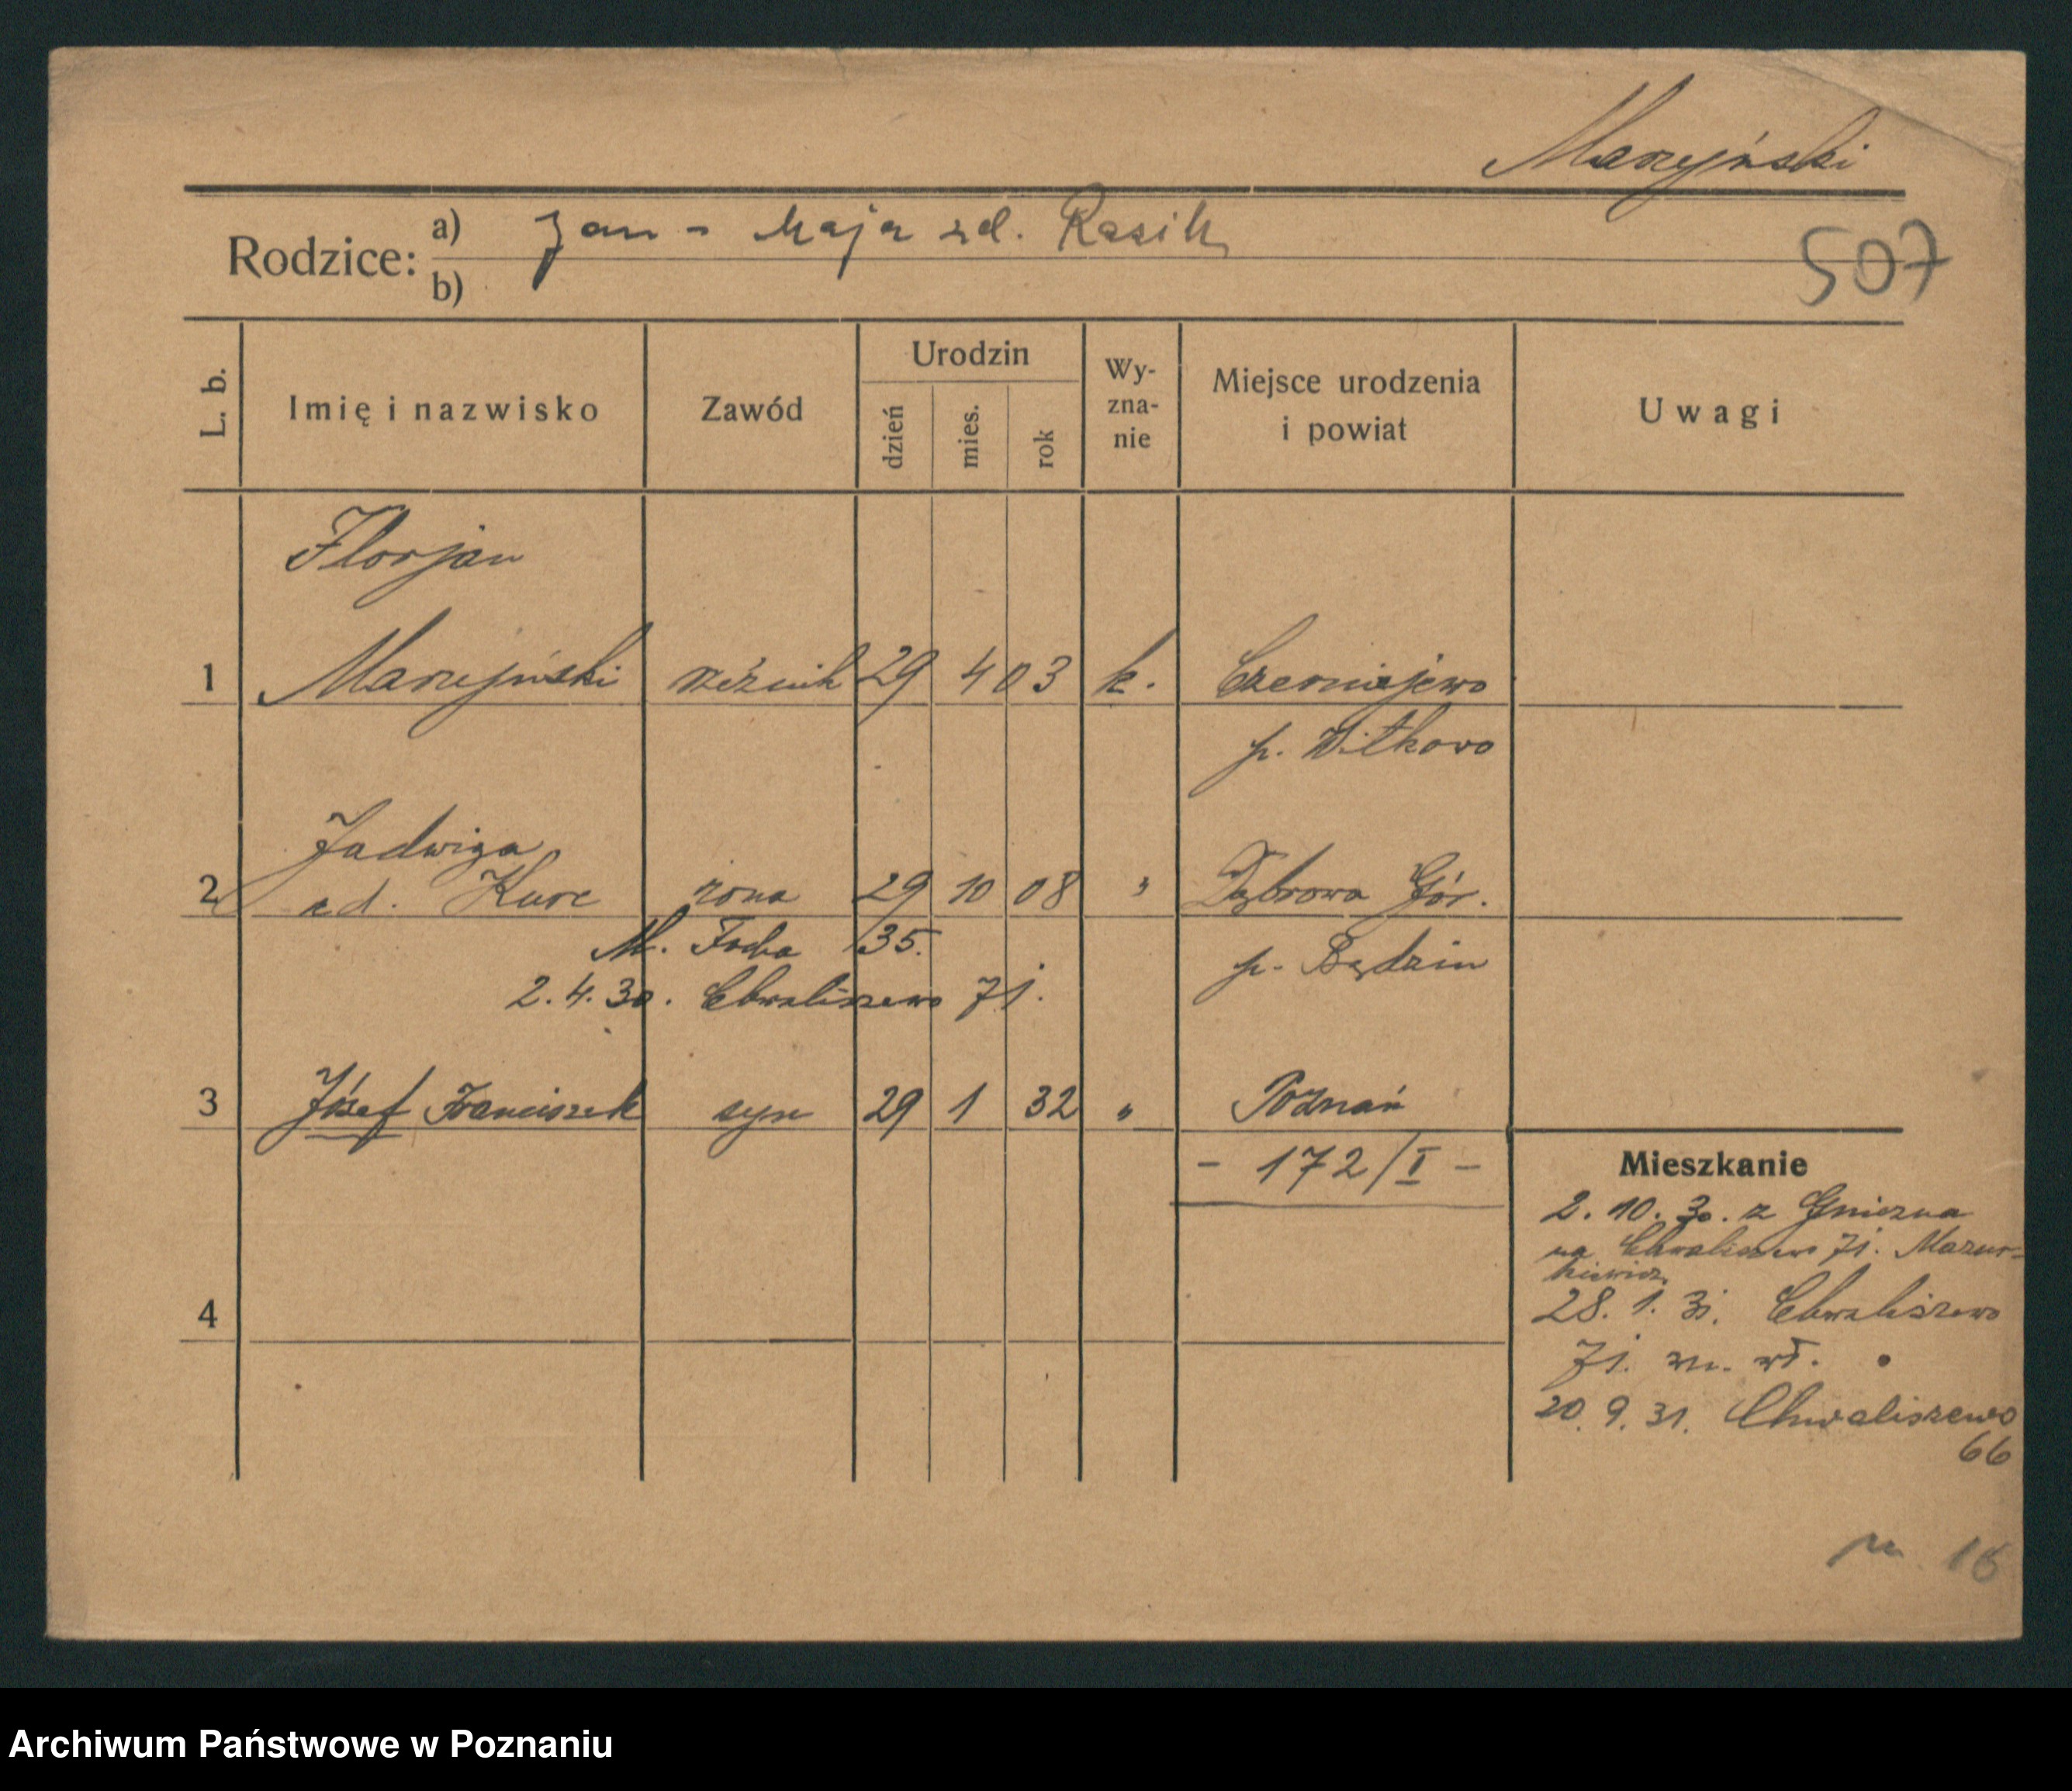 Marzyński
Rodzice: a) Jan - Maja zd. Rasik
b)
507
L. b.
Imię i nazwisko
Zawód
Urodzin
dzień
mies.
rok
Wy-
zna-
nie
Miejsce urodzenia
i powiat
Uwagi
Florjan
1 Marzyński rzeźnik 29 4 03 k. Czerniejewo
p. Witkowo
Jadwiga
2 zd. Kurc żona 29 10 08 " Dąbrowa Gór.
M. Focha 35.
p. Będzin
2.4.30. Chwaliszewo 71.
3 Józef Franciszek syn 29 1 32 " Poznań
- 172/I -
4
Mieszkanie
2. 10. 30. z Gniezna
na Chwaliszewo 71. Mazur-
kiewicz
28. 1. 31. Chwaliszewo
71. m. wł.
20. 9. 31. Chwaliszewo
66
m 16
Archiwum Państwowe w Poznaniu